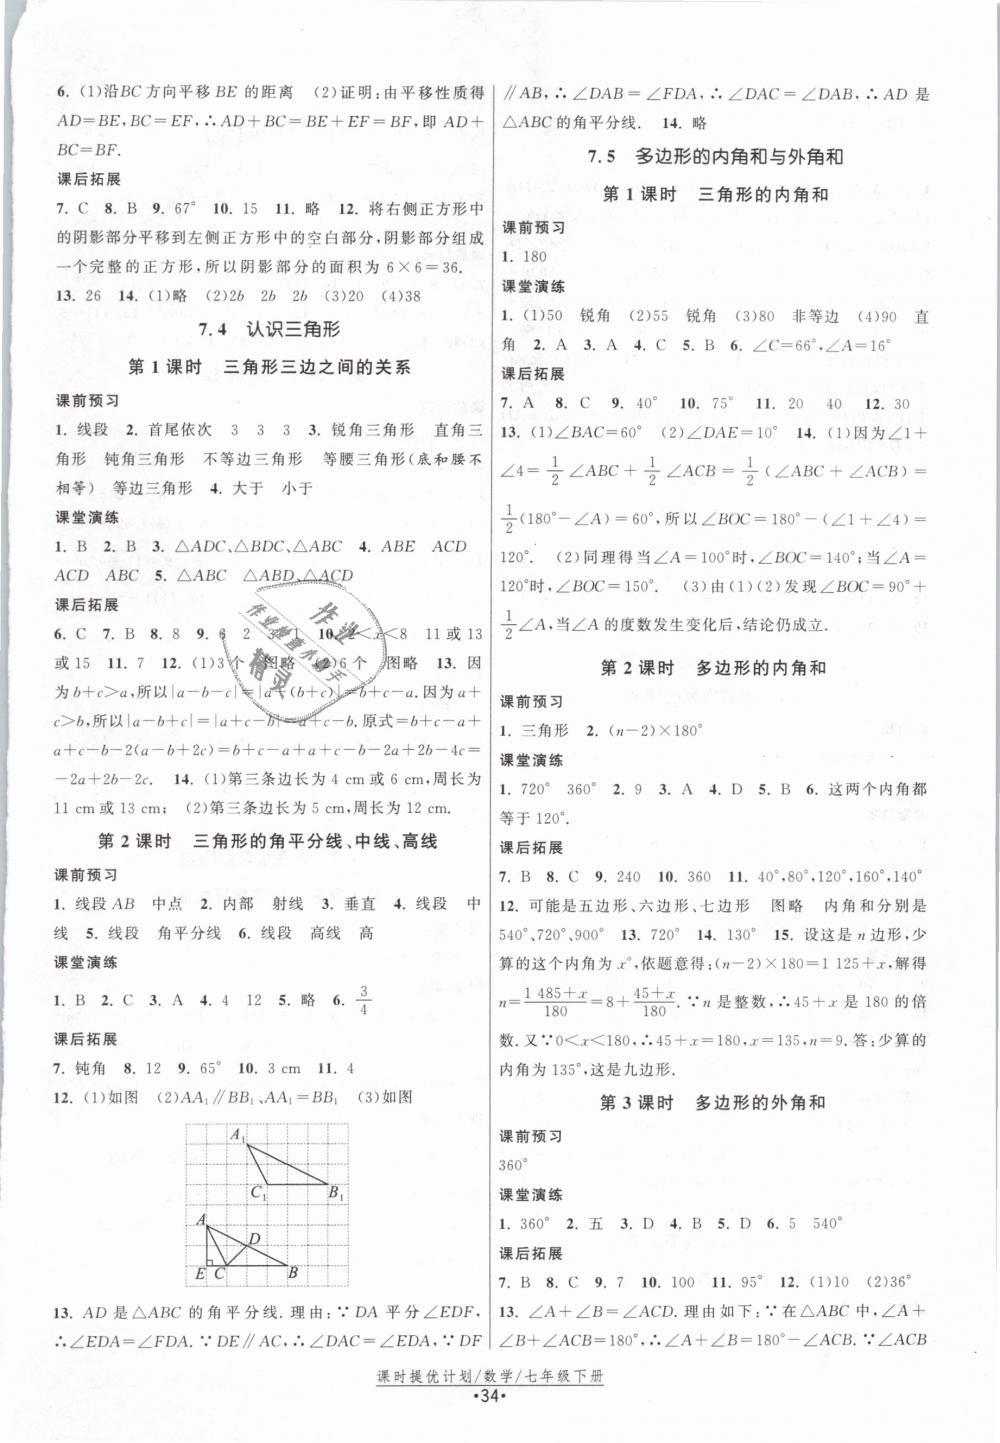 6. (1)沿BC方向平移BE的距离　(2)证明:由平移性质得
AD=BE,BC=EF,∴AD+BC=BE+EF=BF,即AD+
BC=BF.
课后拓展
7. C　8. B　9. 67°　10. 15　11. 略　12. 将右侧正方形中
的阴影部分平移到左侧正方形中的空白部分,阴影部分组成
一个完整的正方形,所以阴影部分的面积为6×6=36.
13. 26　14. (1)略　(2)2b　2b　2b　(3)20　(4)38
7.4　认识三角形
第1课时　三角形三边之间的关系
课前预习
1. 线段　2. 首尾依次　3　3　3　3. 锐角三角形　直角三
角形　钝角三角形　不等边三角形　等腰三角形(底和腰不
相等)　等边三角形　4. 大于　小于
课堂演练
1. B　2. B　3. △ADC、△BDC、△ABC　4. ABE　ACD
ACD　ABC　5. △ABC　△ABD、△ACD
课后拓展
6. C　7. B　8. 8　9. 6　2　3　1　10. 2<x<8　11或13
或15　11. 7　12. (1)3个　图略　(2)6个　图略　13. 因
为b+c>a,所以|a-b-c|=|a-(b+c)|=b+c-a.因为a+
c>b,所以|a-b+c|=|a+c-b|=a+c-b.原式=b+c-a+
a+c-b-2(a-b+2c)=b+c-a+a+c-b-2a+2b-4c=
-2a+2b-2c.　14. (1)第三条边长为4 cm或6 cm,周长为
11 cm或13 cm;　(2)第三条边长为5 cm,周长为12 cm.
第2课时　三角形的角平分线、中线、高线
课前预习
1. 线段AB　中点　2. 内部　射线　3. 垂直　4. 线段　中
线　5. 线段　角平分线　6. 线段　高线　高
课堂演练
1. B　2. C　3. A　4. 4　12　5. 略　6. 3/4
课后拓展
7. 钝角　8. 12　9. 65°　10. 3 cm　11. 4
12. (1)如图　(2)AA₁∥BB₁、AA₁=BB₁　(3)如图
A₁
C₁　B₁
A
D
E　C　B
13. AD是△ABC的角平分线.理由:∵DA平分∠EDF,
∴∠EDA=∠FDA.∵DE∥AC,∴∠DAC=∠EDA,∵DF
∥AB,∴∠DAB=∠FDA,∴∠DAC=∠DAB,∴AD是
△ABC的角平分线.　14. 略
7.5　多边形的内角和与外角和
第1课时　三角形的内角和
课前预习
1. 180
课堂演练
1. (1)50　锐角　(2)55　锐角　(3)80　非等边　(4)90　直
角　2. A　3. A　4. C　5. B　6. ∠C=66°,∠A=16°
课后拓展
7. A　8. C　9. 40°　10. 75°　11. 20　40　12. 30
13. (1)∠BAC=60°　(2)∠DAE=10°　14. (1)因为∠1+
∠4=1/2∠ABC+1/2∠ACB=1/2(∠ABC+∠ACB)=
1/2(180°-∠A)=60°,所以∠BOC=180°-(∠1+∠4)=
120°.　(2)同理得当∠A=100°时,∠BOC=140°;当∠A=
120°时,∠BOC=150°.　(3)由(1)(2)发现∠BOC=90°+
1/2∠A,当∠A的度数发生变化后,结论仍成立.
第2课时　多边形的内角和
课前预习
1. 三角形　2. (n-2)×180°
课堂演练
1. 720°　360°　2. 9　3. A　4. D　5. B　6. 这两个内角都
等于120°.
课后拓展
7. B　8. C　9. 240　10. 360　11. 40°,80°,120°,160°,140°
12. 可能是五边形、六边形、七边形　图略　内角和分别是
540°、720°、900°　13. 720°　14. 130°　15. 设这是n边形,少
算的这个内角为x°,依题意得:(n-2)×180=1 125+x,解得
n=(1 485+x)/180=8+(45+x)/180.∵n是整数,∴45+x是180的倍
数.又∵0<x<180,∴45+x=180,x=135,n=9.答:少算的
内角为135°,这是九边形.
第3课时　多边形的外角和
课前预习
360°
课堂演练
1. 360°　2. 五　3. D　4. B　5. D　6. 5　540°
课后拓展
7. B　8. C　9. 7　10. 100　11. 95°　12. (1)10　(2)36°
13. ∠A+∠B=∠ACD.理由如下:∵在△ABC中,∠A+
∠B+∠ACB=180°,∴∠A+∠B=180°-∠ACB.又∵∠ACB
课时提优计划/数学/七年级下册
·34·
作业
作业检查小助手
精灵